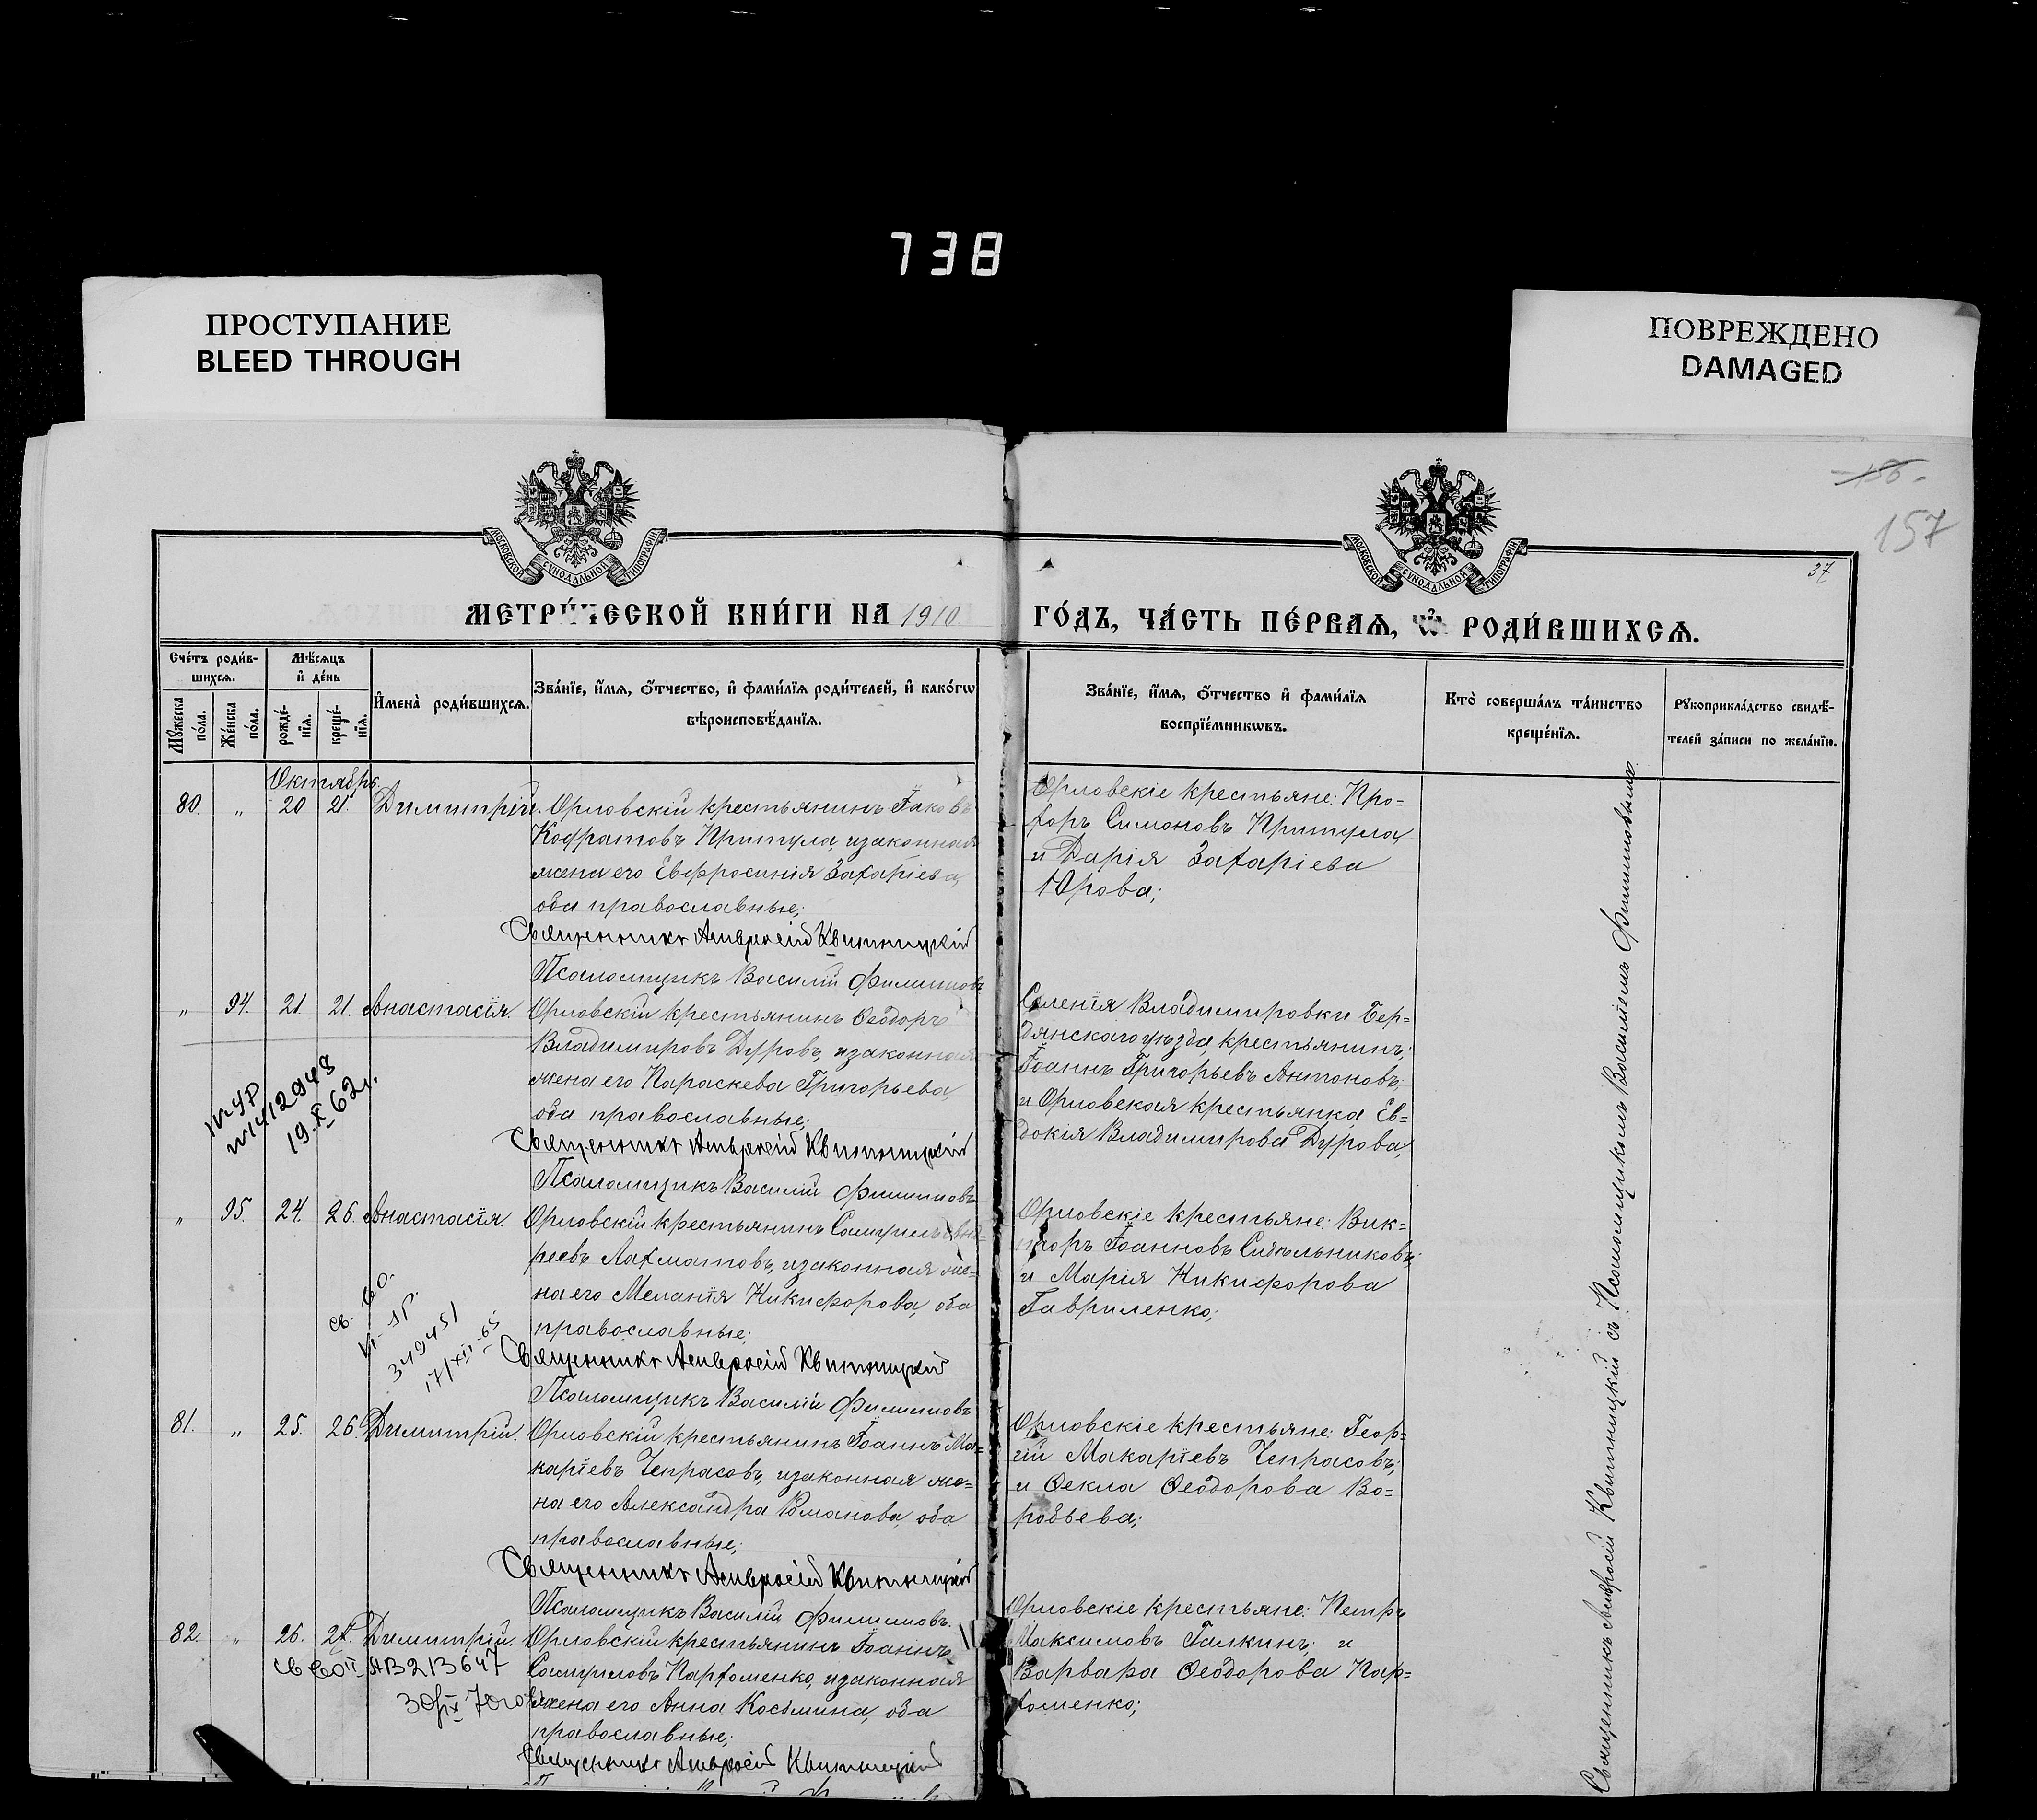 738
ПРОСТУПАНИЕ
BLEED THROUGH
ПОВРЕЖДЕНО
DAMAGED
156.
157
37
МОСКОВСКОЙ СУНОДАЛЬНОЙ ТИПОГРАФІИ
МОСКОВСКОЙ СУНОДАЛЬНОЙ ТИПОГРАФІИ
МЕТРИ́ЧЕСКОЙ КНИ́ГИ НА 1910 ГО́ДЪ, ЧА́СТЬ ПЕ́РВАѦ, Ѡ РОДИ́ВШИХСѦ.
Сче́тъ роди́в-
шихсѧ.
Мꙋжеска по́ла.
Же́нска по́ла.
Мѣ́сѧцъ
и҆ де́нь
рожде́-
нїѧ.
креще́-
нїѧ.
И҆мена̀ роди́вшихсѧ.
Зва́нїе, и҆́мѧ, ѻ҆́тчество, и҆ фами́лїѧ роди́телей, и҆ како́гѡ
вѣроисповѣ́данїѧ.
Зва́нїе, и҆́мѧ, ѻ҆́тчество и҆ фами́лїѧ
воспрїе́мникѡвъ.
Кто̀ соверша́лъ та́инство
креще́нїѧ.
Рꙋкоприкла́дство свидѣ́-
телей за́писи по жела́нїю.
Октябрь.
80. „ 20 21. Димитрій. Орловскій крестьянинъ Іаковъ
Кодратовъ Притула, и законная
жена его Евфросинія Захаріева,
оба православные;
Священникъ Амвросій Квитницкій
Псаломщикъ Василій Филиповъ
Орловскіе крестьяне: Про=
форъ Симоновъ Притула,
и Дарія Захаріева
Юрова;
„ 94. 21. 21. Анастасія. Орловскій крестьянинъ Ѳеодоръ
Владимировъ Дуровъ, и законная
жена его Параскева Григорьева,
оба православные;
Священникъ Амвросій Квитницкій
Псаломщикъ Василій Филиповъ
Селенія Владимировки Бер=
дянскаго уѣзда, крестьянинъ:
Іоаннъ Григорьевъ Антоновъ,
и Орловская крестьянка, Ев=
докія Владимирова Дурова,
19.X 62г.
„ 95. 24. 26. Анастасія. Орловскій крестьянинъ Самуилъ Анд=
реевъ Лахматовъ, и законная же=
на его Меланія Никифорова, оба
православные;
Священникъ Амвросій Квитницкій
Псаломщикъ Василій Филиповъ
Орловскіе крестьяне: Вик=
торъ Іоанновъ Сидѣльниковъ;
и Марія Никифорова
Гавриленко;
349451
17/XII-65
81. „ 25. 26. Димитрій. Орловскій крестьянинъ Іоаннъ Ма=
каріевъ Чепрасовъ, и законная же=
на его Александра Романова, оба
православные;
Священникъ Амвросій Квитницкій
Псаломщикъ Василій Филиповъ.
Орловскіе крестьяне: Геор=
гій Макаріевъ Чепрасовъ;
и Ѳекла Ѳеодорова Во=
робьева;
82. „ 26. 27. Димитрій. Орловскій крестьянинъ Іоаннъ
Самуиловъ Пархоменко, и законная
жена его Анна Косьмина, оба
православные;
Священникъ Амвросій Квитницкій
Орловскіе крестьяне: Петръ
Максимовъ Галкинъ; и
Варвара Ѳеодорова Пар=
хоменко;
Священникъ Амвросій Квитницкій съ Псаломщикомъ Василіемъ Филиповымъ.